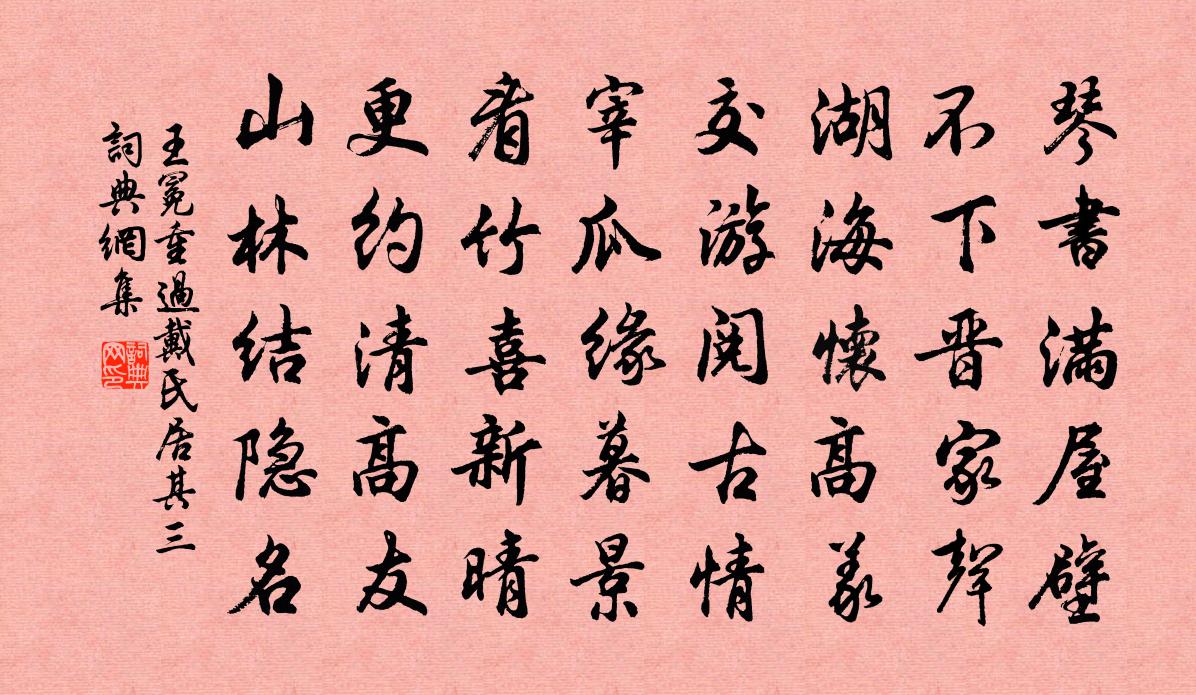 琴書滿屋壁
不下晋家聲
湖海懷高義
交游閱古情
宰瓜緣暮景
看竹喜新晴
更約清高友
山林結隐名
王冕重過戴氏居其三
詞典網集
詞典网印